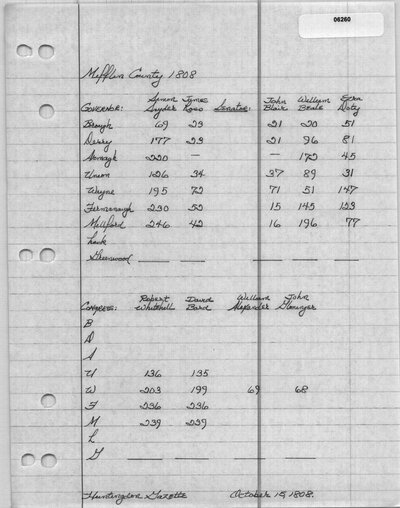 06260
Mifflin County 1808
Simon James John William Ezra
Governor: Snyder Ross Senator: Blair Beale Doty
Brough 69 23 21 20 51
Derry 177 23 21 96 81
Armagh 220 — — 172 45
Union 126 34 37 89 31
Wayne 195 72 71 51 147
Fermanagh 230 52 15 145 123
Milford 246 42 16 196 77
Lack
Greenwood —— —— —— —— ——
Robert David William John
Congress: Whitehill Bard Alexander Gloninger
B
D
A
U 136 135
W 203 199 69 68
F 236 236
M 239 239
L
G —— —— —— ——
Huntingdon Gazette October 15, 1808.